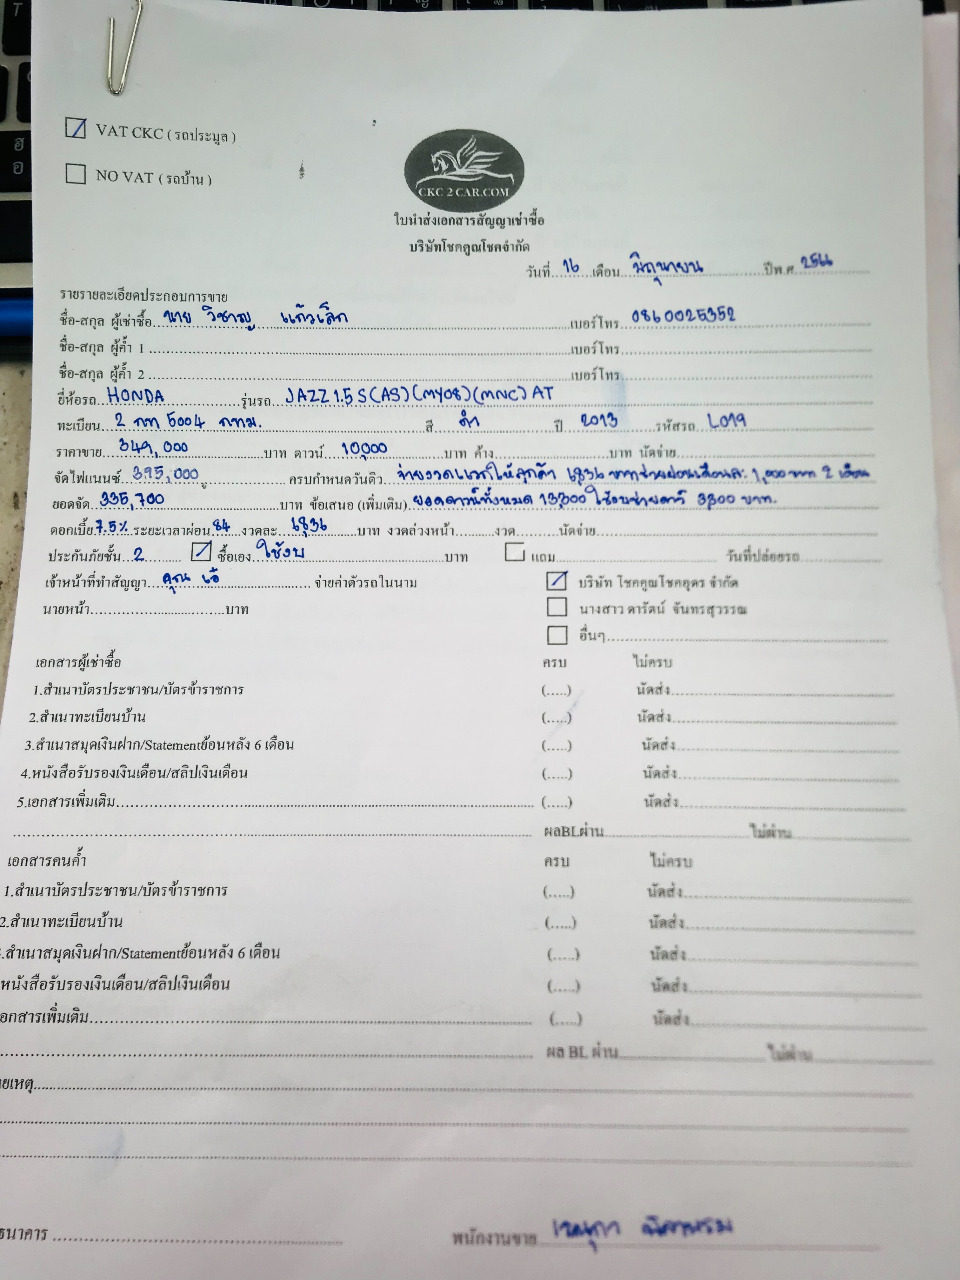 ☑ VAT CKC ( รถประมูล )
☐ NO VAT ( รถบ้าน )
CKC 2 CAR.COM
ใบนำส่งเอกสารสัญญาเช่าซื้อ
บริษัทโชคคูณโชคจำกัด
วันที่ 16 เดือน มิถุนายน ปีพ.ศ. 2566
รายรายละเอียดประกอบการขาย
ชื่อ-สกุล ผู้เช่าซื้อ นาย วิชาญ แก้วเล็ก เบอร์โทร 0860025352
ชื่อ-สกุล ผู้ค้ำ 1 เบอร์โทร
ชื่อ-สกุล ผู้ค้ำ 2 เบอร์โทร
ยี่ห้อรถ HONDA รุ่นรถ JAZZ 1.5 S (AS) (MY08) (MNC) AT
ทะเบียน 2 กท 5004 กทม. สี ดำ ปี 2013 รหัสรถ L019
ราคาขาย 349,000 บาท ดาวน์ 10,000 บาท ค้าง บาท นัดจ่าย
จัดไฟแนนซ์ 395,000 ครบกำหนดวันดิว จ่ายงวดแรกให้ลูกค้า 6,836 บาท ช่วยผ่อนเดือนละ 1,000 บาท 2 เดือน
ยอดจัด 335,700 บาท ข้อเสนอ (เพิ่มเติม) ยอดดาวน์ทั้งหมด 13,300 ใช้งบช่วยดาวน์ 3,300 บาท.
ดอกเบี้ย 7.5% ระยะเวลาผ่อน 84 งวดละ 6,836 บาท งวดล่วงหน้า งวด นัดจ่าย
ประกันภัยชั้น 2 ☑ ซื้อเอง ใช้งบ บาท ☐ แถม วันที่ปล่อยรถ
เจ้าหน้าที่ทำสัญญา คุณ เอ๋ จ่ายค่าตัวรถในนาม ☑ บริษัท โชคคูณโชคอุดร จำกัด
นายหน้า บาท ☐ นางสาว ดารัตน์ จันทรสุวรรณ
☐ อื่นๆ
เอกสารผู้เช่าซื้อ ครบ ไม่ครบ
1.สำเนาบัตรประชาชน/บัตรข้าราชการ (.....) นัดส่ง
2.สำเนาทะเบียนบ้าน (.....) นัดส่ง
3.สำเนาสมุดเงินฝาก/Statementย้อนหลัง 6 เดือน (.....) นัดส่ง
4.หนังสือรับรองเงินเดือน/สลิปเงินเดือน (.....) นัดส่ง
5.เอกสารเพิ่มเติม (.....) นัดส่ง
ผลBLผ่าน ไม่ผ่าน
เอกสารคนค้ำ ครบ ไม่ครบ
1.สำเนาบัตรประชาชน/บัตรข้าราชการ (.....) นัดส่ง
2.สำเนาทะเบียนบ้าน (.....) นัดส่ง
.สำเนาสมุดเงินฝาก/Statementย้อนหลัง 6 เดือน (.....) นัดส่ง
หนังสือรับรองเงินเดือน/สลิปเงินเดือน (.....) นัดส่ง
อกสารเพิ่มเติม (.....) นัดส่ง
ผล BL ผ่าน ไม่ผ่าน
ยเหตุ
ธนาคาร พนักงานขาย